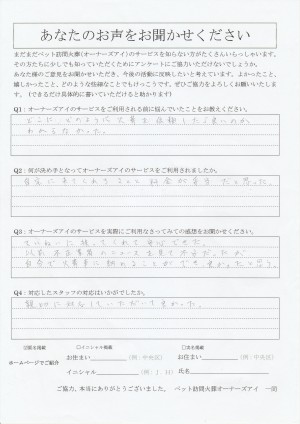 あなたのお声をお聞かせください
まだまだペット訪問火葬(オーナーズアイ)のサービスを知らない方がたくさんいらっしゃいます。
その方たちに少しでも知っていただくためにアンケートにご協力いただけないでしょうか。
あなた様のご意見をお聞かせいただき、今後の活動に反映したいと考えています。よかったこと、
嬉しかったこと、どのような些細なことでもけっこうです。ぜひご協力をよろしくお願いいたしま
す。(できるだけ具体的に書いていただけると助かります)
Q1:オーナーズアイのサービスをご利用される前に悩んでいたことをお教えください。
どこに、どのように火葬を依頼したら良いのか
わからなかった。
Q2:何が決め手となってオーナーズアイのサービスをご利用されましたか。
自宅に来てくれること 料金が
だと思った。
Q3:オーナーズアイのサービスを実際にご利用なさってみての感想をお聞かせください。
ていねいに扱ってくれて安心できた。
自分で
ことができ 良かったと思う。
Q4:対応したスタッフの対応はいかがでしたか。
親切に対応していただいて良かった。
□匿名掲載 □イニシャル掲載 □実名掲載
ホームページでご紹介
お住まい (例:中央区) お住まい (例:中央区)
イニシャル (例:J. H) 氏名
ご協力、本当にありがとうございました。 ペット訪問火葬オーナーズアイ 一同